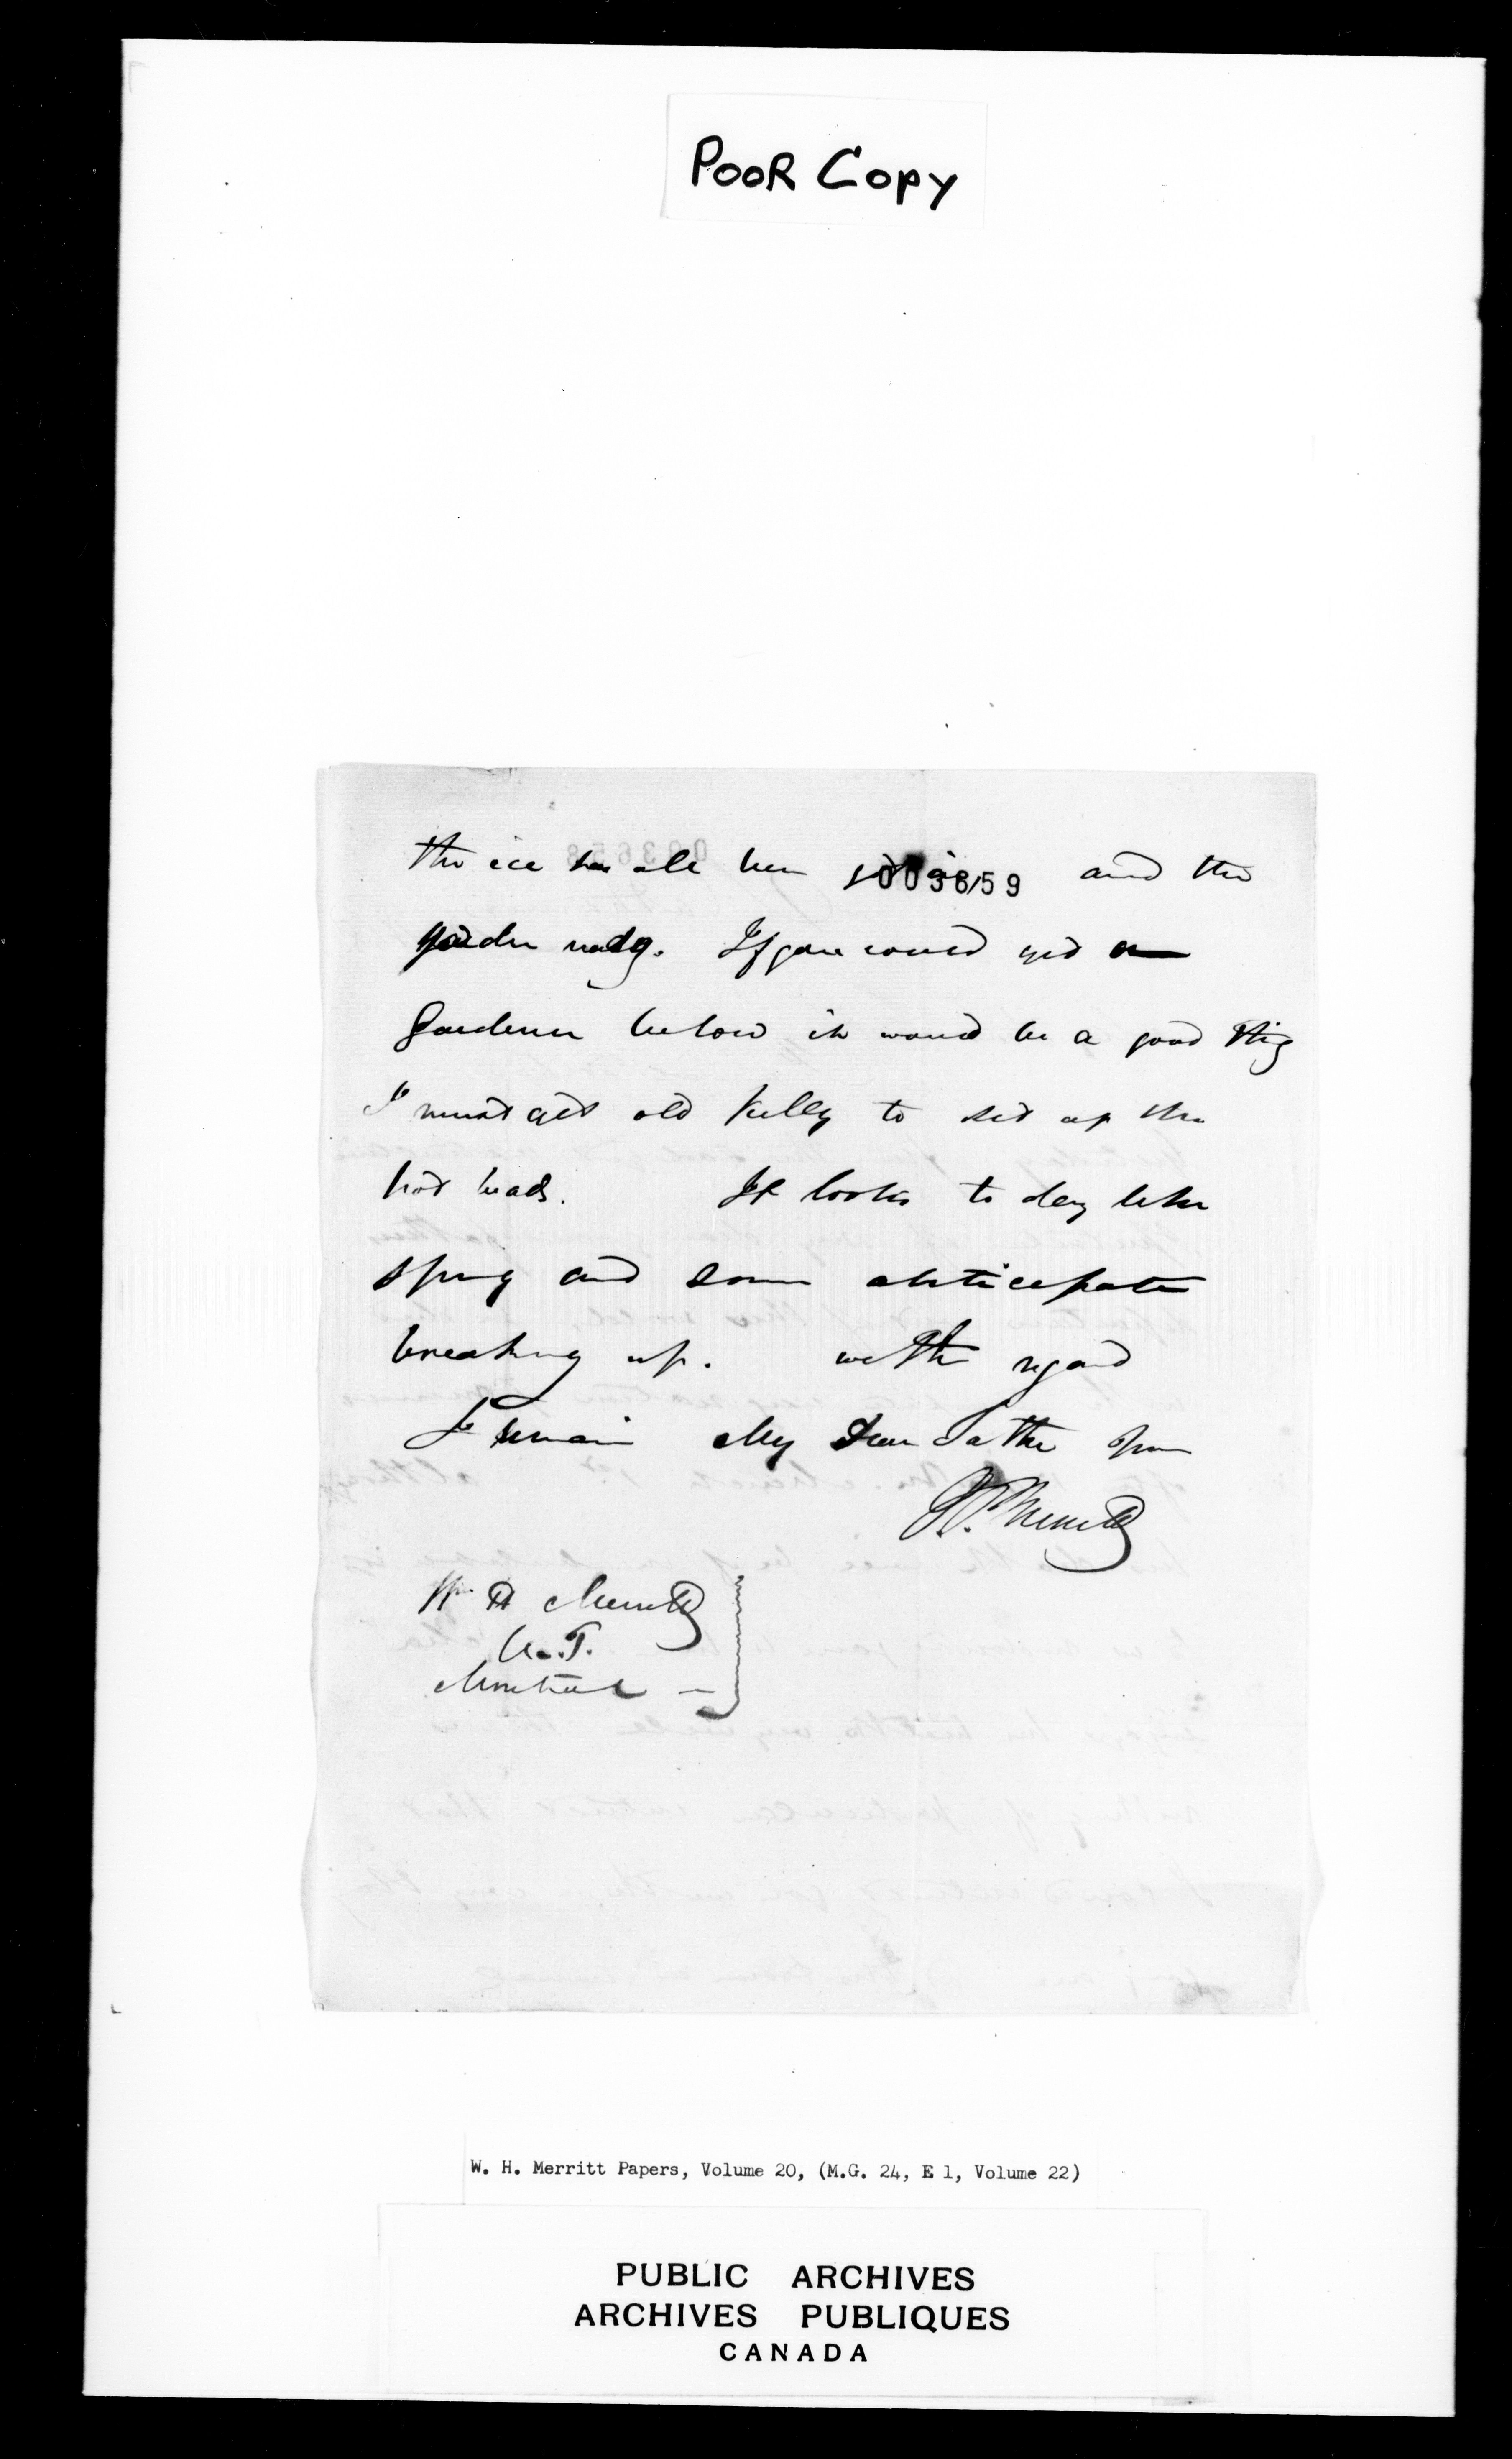 POOR COPY
the ice has all been 003659 and the
garden ready. If you could get a
Gardener below it would be a good thing
I must get old Kelly to set up the
hot beds. It looks to day like
spring and some anticipate
breaking up. with regard
I remain My Dear Father Yours
J.P. Merritt
Wm H Merritt
Montreal
W. H. Merritt Papers, Volume 20, (M.G. 24, E 1, Volume 22)
PUBLIC ARCHIVES
ARCHIVES PUBLIQUES
CANADA